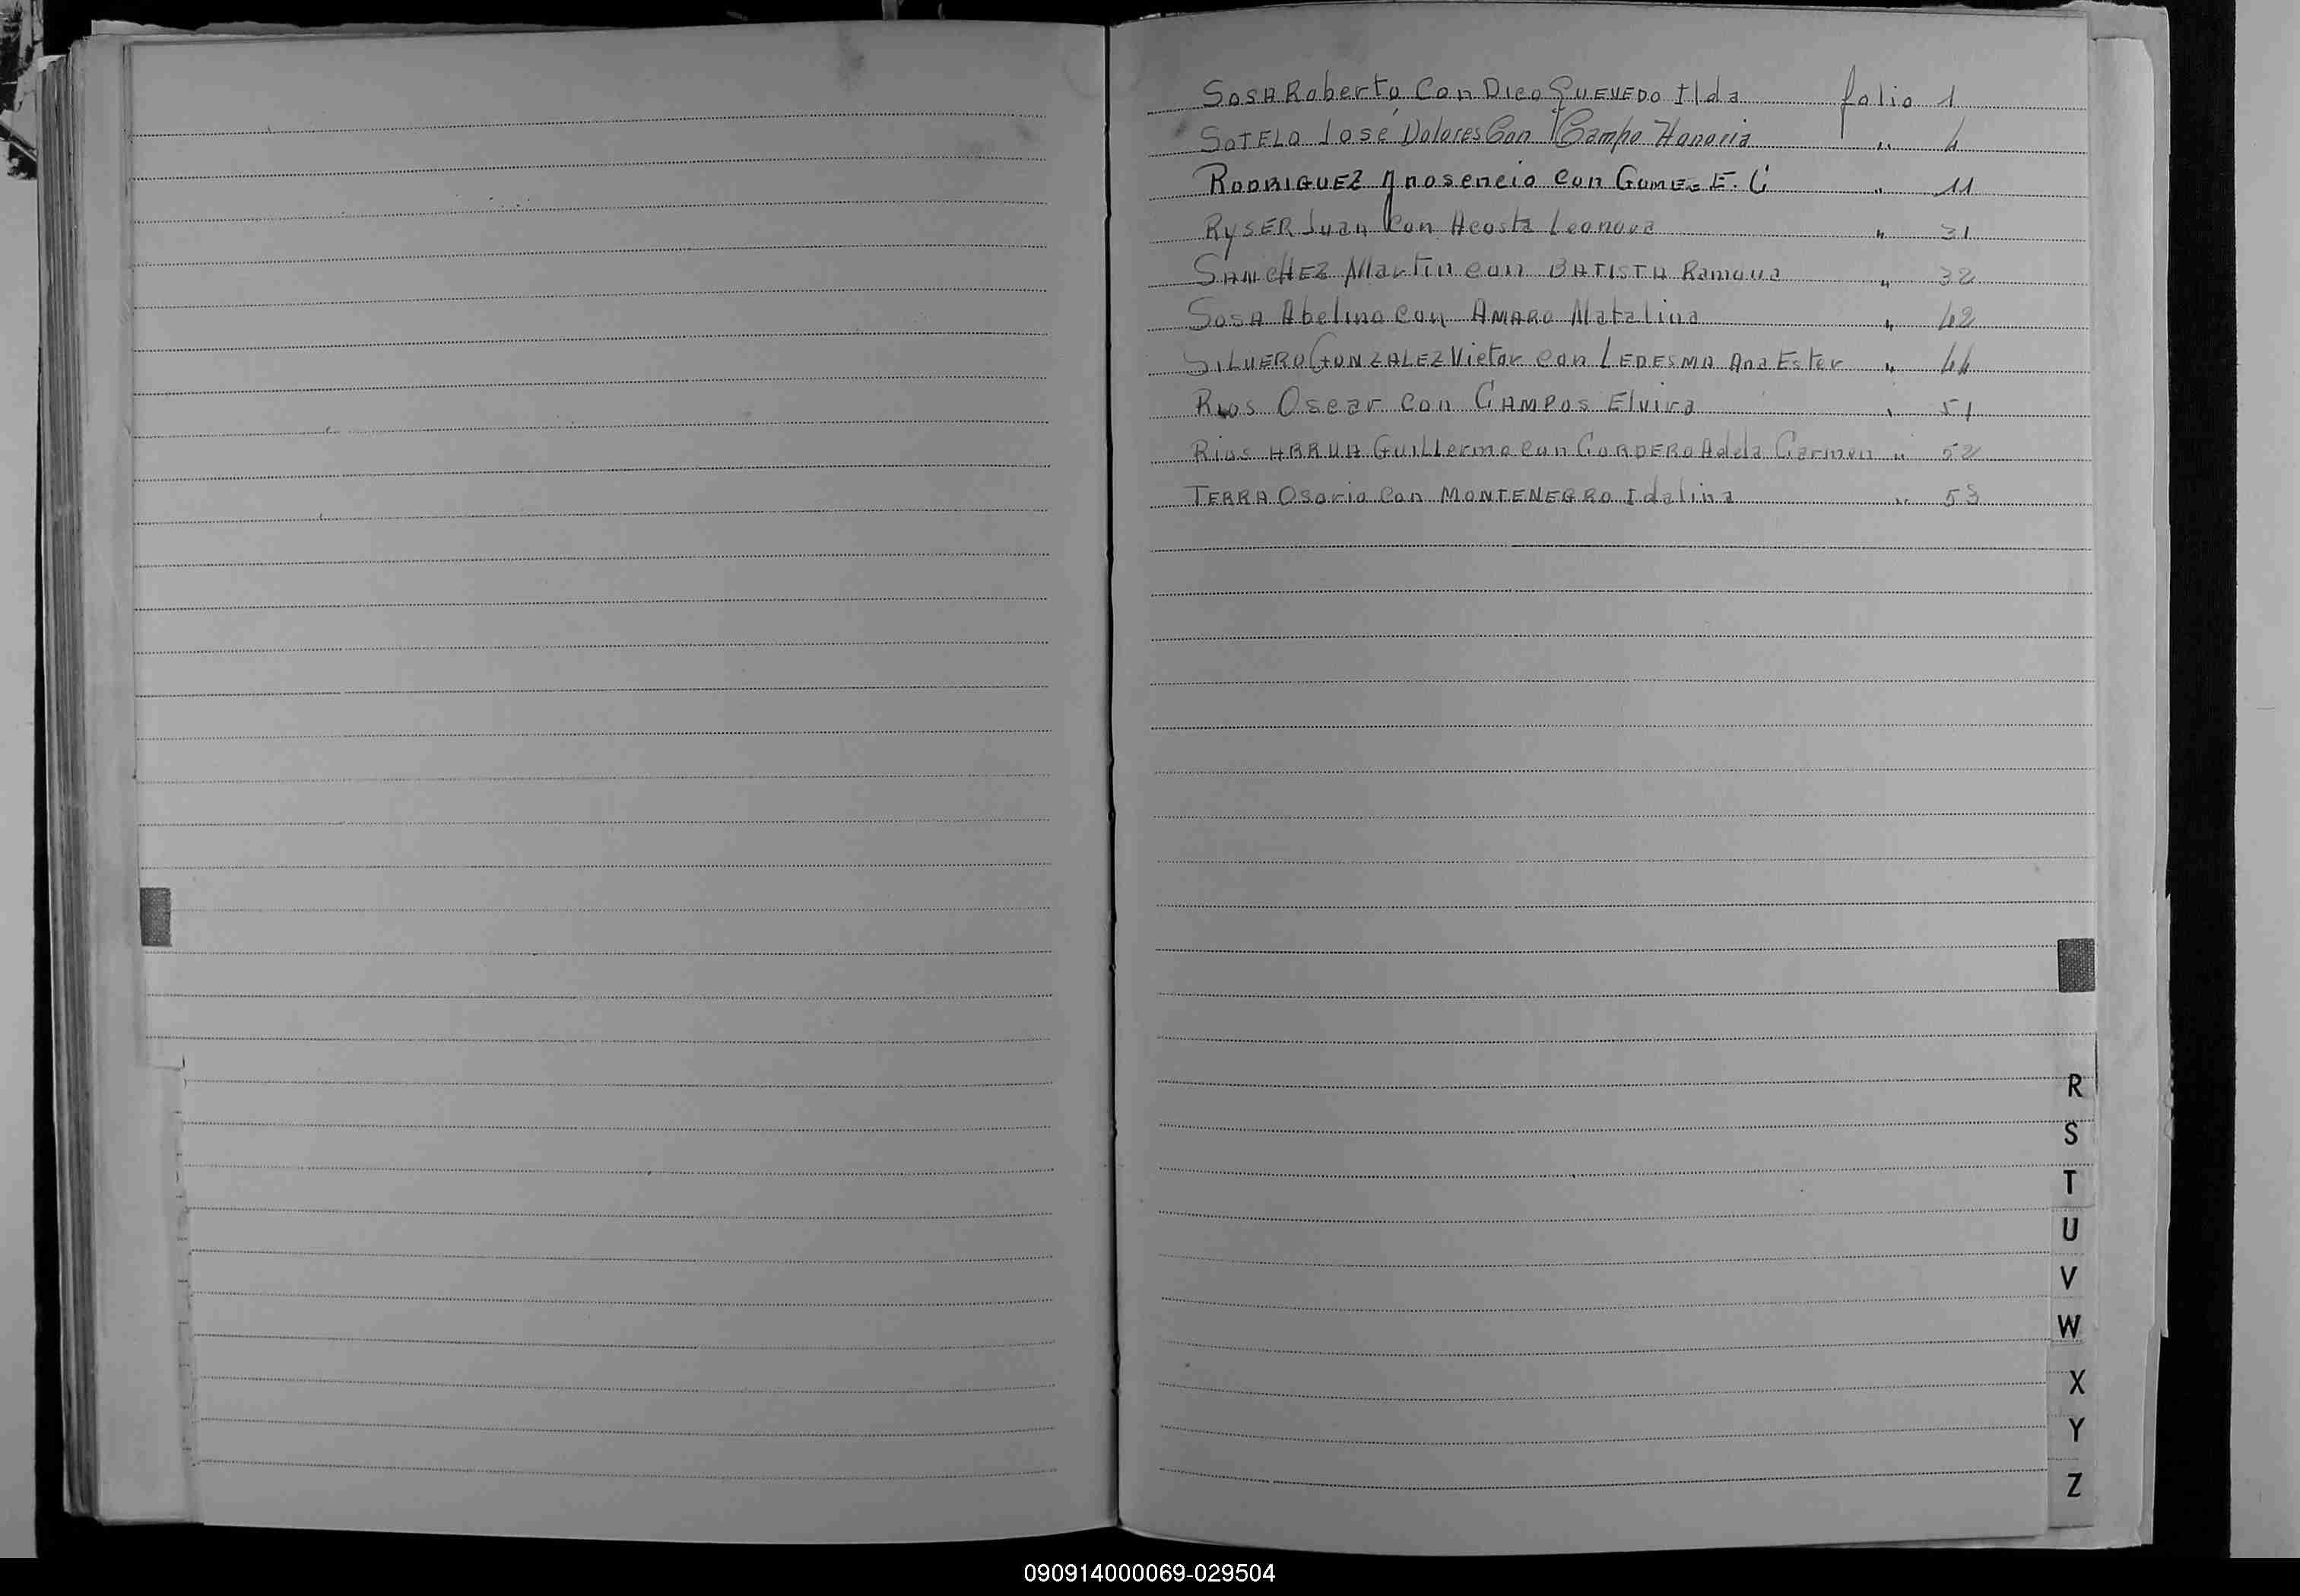 SOSA Roberto Con Dico QUEVEDO Ilda folio 1
SOTELO José Dolores Con Campo Honoria " 4
RODRIGUEZ Ynosencio Con GOMEZ E. C " 11
RySER Juan Con Acosta Leonora " 31
SANCHEZ Martin con BATISTA Ramona " 32
SOSA Abelino con AMARO Natalina " 42
SILUERO GONZALEZ Victor con LEDESMA Ana Ester " 44
Rios Oscar con CAMPOS Elvira " 51
Rios ARRUA Guillermo con CORDERO Adela Carmen " 52
TERRA Osorio Con MONTENEGRO Idalina " 53
R
S
T
U
V
W
X
Y
Z
090914000069-029504